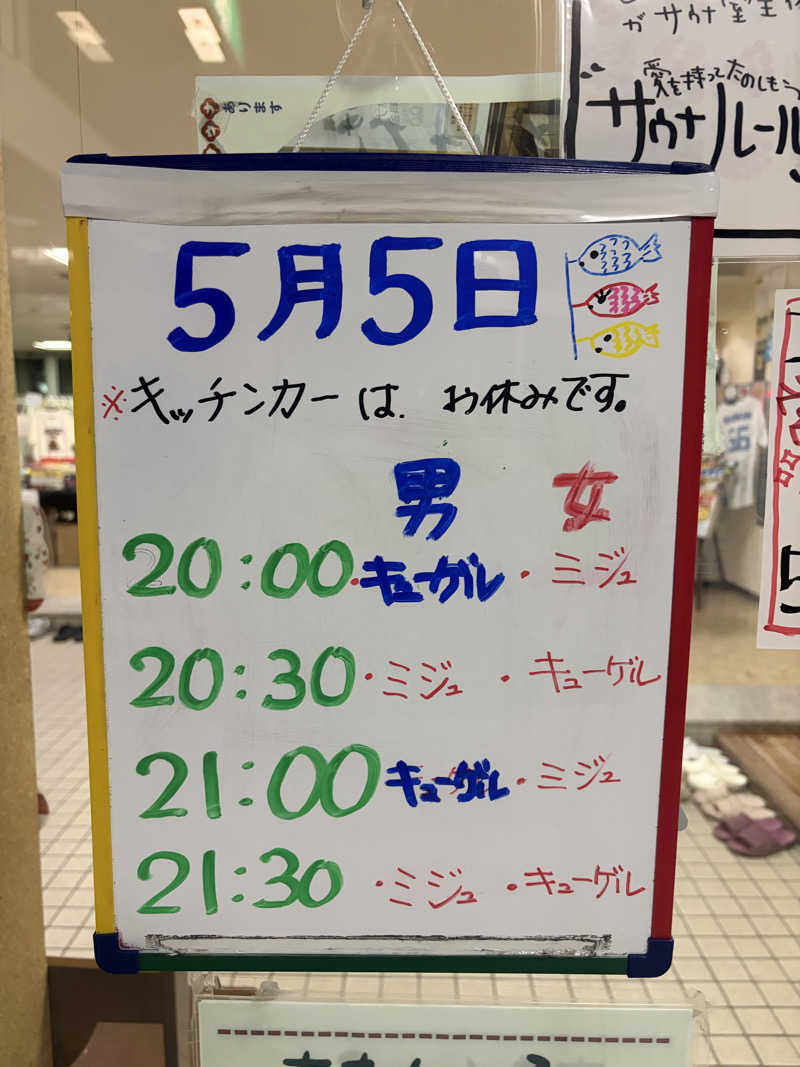 あります
がサウナ室
愛を持ってたのしもう
サウナルール
5月5日
※キッチンカーは、お休みです。
男 女
20:00・キューゲル・ミジュ
20:30・ミジュ・キューゲル
21:00 キューゲル・ミジュ
21:30・ミジュ・キューゲル